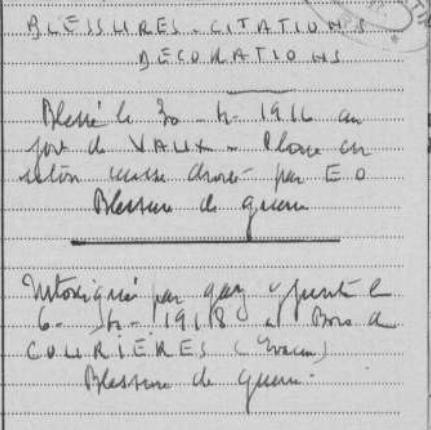 BLESSURES - CITATIONS
DECORATIONS
Blessé le 30 - 4 - 1916 au
fort de VAUX - Plaie en
séton cuisse droite par E O
Blessure de guerre
Intoxiqué par gaz le
6 - 1918 Bois de
COURIERES (Evacué)
Blessure de guerre.